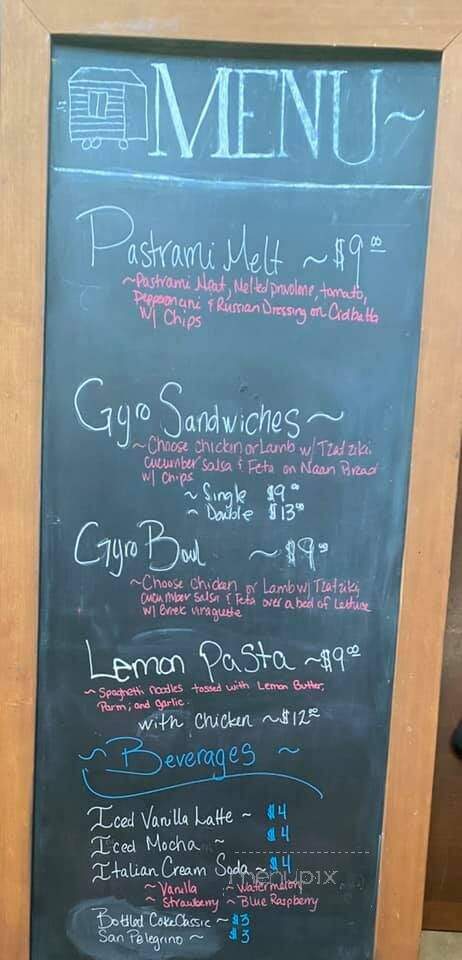 MENU ~
Pastrami Melt ~ $9.00
~ Pastrami Meat, Melted provolone, tomato,
Pepperoncini & Russian Dressing on Ciabatta
w/ Chips
Gyro Sandwiches ~
~ Choose chicken or Lamb w/ Tzatziki
cucumber salsa & Feta on Naan Bread
w/ chips
~ Single $9.00
~ Double $13.00
Gyro Bowl ~ $9.00
~ Choose Chicken or Lamb w/ Tzatziki,
cucumber salsa & Feta over a bed of Lettuce
w/ Greek
Lemon Pasta ~ $9.00
~ Spaghetti noodles tossed with Lemon Butter,
Parm, and garlic.
with chicken ~ $12.00
~ Beverages ~
Iced Vanilla Latte ~ $4
Iced Mocha ~ $4
Italian Cream Soda ~ $4
~ Vanilla ~ Watermelon
~ Strawberry ~ Blue Raspberry
menupix
Bottled Coke Classic ~ $3
San Pelegrino ~ $3